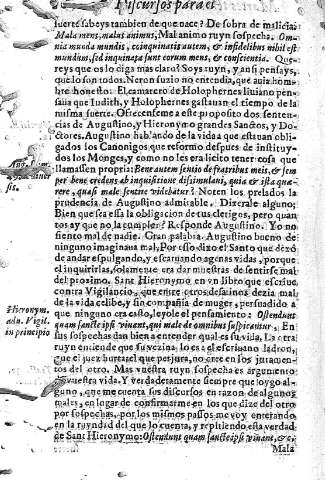 Discursos para el
fuerte sabeys tambien de que nace? De sobra de malicia:
Mala mens, malus animus, Mal animo ruyn sospecha. Om-
nia munda mundis, coinquinatis autem, & infidelibus nihil est
mundum, sed inquinata sunt eorum mens, & conscientia. Que-
reys que os lo diga mas claro? Soys ruyn, y ansi pensays,
que lo son todos. Neron suzio no entendia, que auia hom-
bre honesto. El camarero de Holophernes liuiano pen-
saua que Iudith, y Holophernes gastauan el tiempo de la
misma suerte. Ofrecenseme a este proposito dos senten-
cias de Augustino, y Hieronymo grandes Santos, y Do-
ctores. Augustino hablando de la vida que estauan obli-
gados los Canonigos que reformo despues de instituy-
dos los Monges, y como no les era licito tener cosa que
llamassen propria: Bene autem sentio de fratribus meis, & sem
per bene credens ab inquisitione dissimulani, quia & ista quæ-
rere, quasi male sentire videbatur! Noten los prelados la
prudencia de Augustino admirable. Dizerale alguno:
Bien que sea essa la obligacion de tus clerigos, pero quan-
tos ay que no la cumplen? Responde Augustino. Yo no
siento mal de nadie. Gran palabra. Augustino bueno de
ninguno imaginaua mal, Por esso dixo el Santo que dexó
de andar espulgando, y escaruando agenas vidas, porque
el inquirirlas, solamente era dar muestras de sentirse mal
del proximo. San Hieronymo en vn libro que escriue
contra Vigilancio, que entre otros desatinos dezia mal
de la vida celibe, y sin compañia de muger, persuadido a
que ninguno era casto, leyole el pensamiento: Ostendunt
Hieronym.
adu. Vigil.
in principio
quam sancte ipsi viuant, qui male de omnibus suspicantur. En
sus sospechas dan bien a entender qual es su vida. La otra
ruyn entiende que su vezina, lo es: el escriuano ladron,
que el juez hurta: el que perjura, no cree en los juramen-
tos del otro. Mas vuestra ruyn sospecha es argumento
de vuestra vida. Y verdaderamente siempre que oygo al-
guno, que me cuenta sus discursos en razon de algunos
males, en lugar de confirmarme en los que dize del otro
por sospechas, por los mismos passos me voy enterando
en la ruyndad del que lo cuenta, y repitiendo essa verdad
de Sant Hieronymo: Ostendunt quam sancte ipsi viuant, &c.
Mala